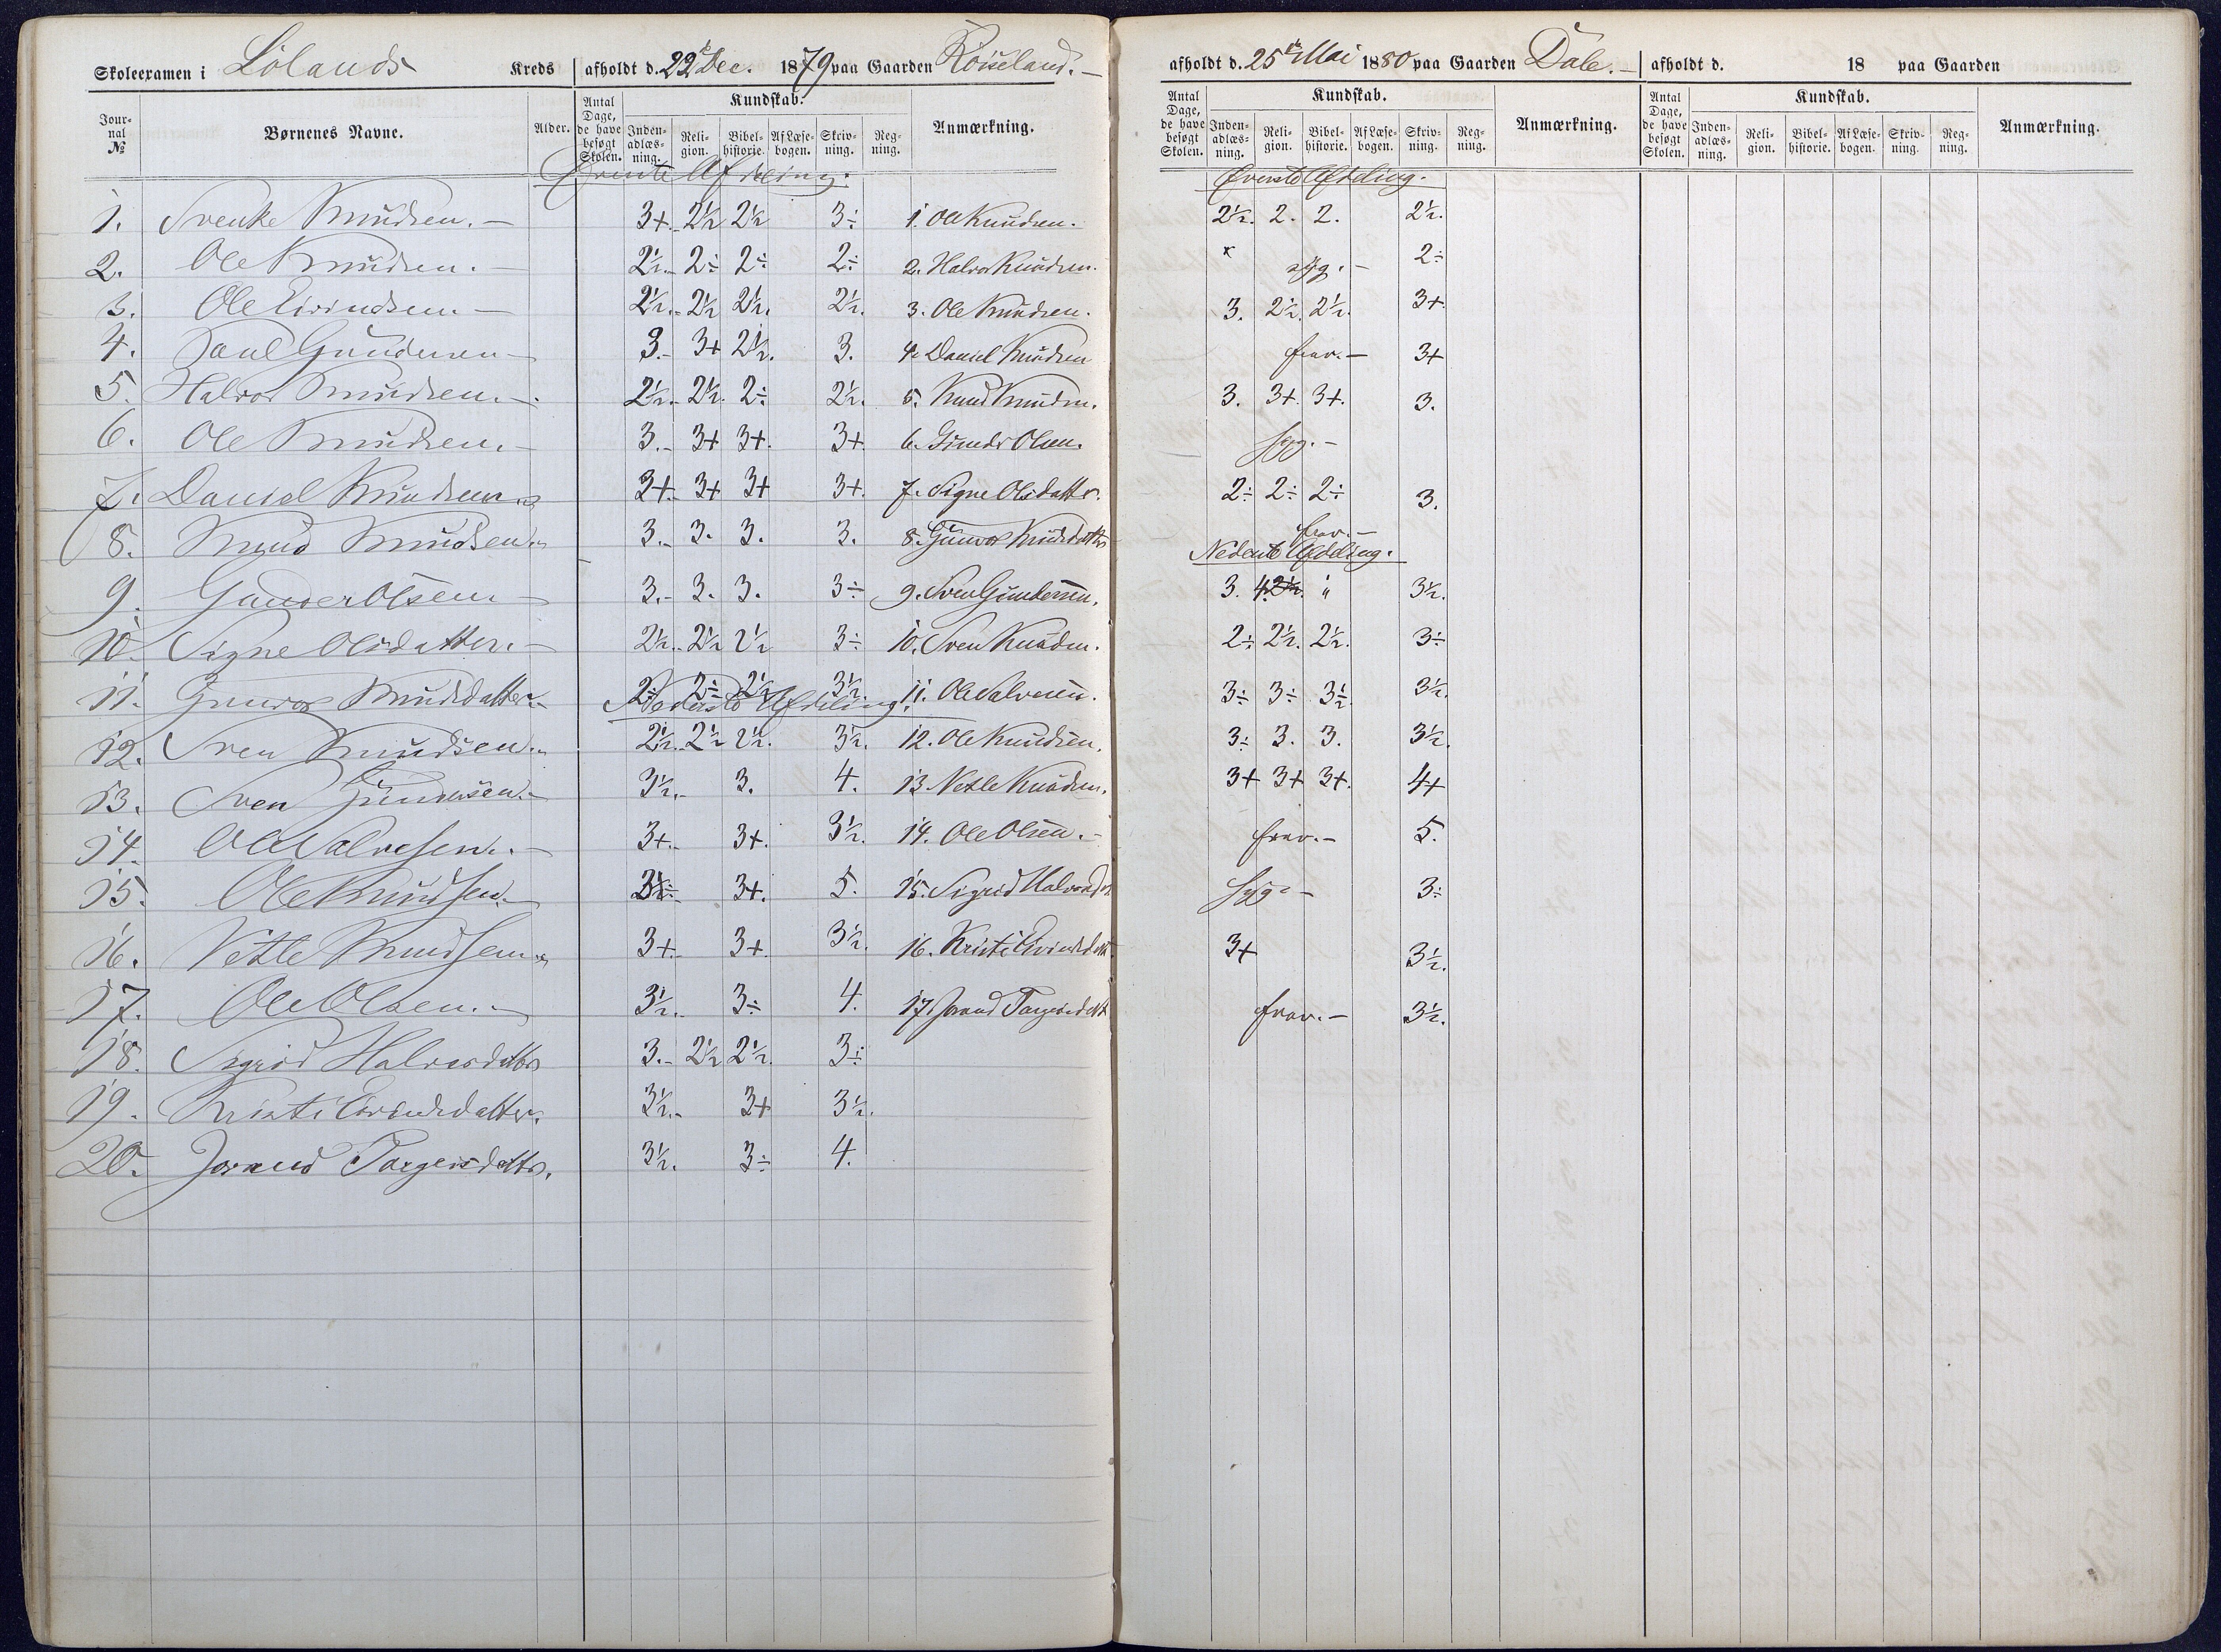 Skoleexamen i Lölands Kreds afholdt d. 22 Dec. 1879 paa Gaarden Röiseland. —
Jour-nal № Børnenes Navne. Alder. Antal Dage, de have besøgt Skolen. Kundskab. Inden-adlæs-ning. Reli-gion. Bibel-historie. Af Læse-bogen. Skriv-ning. Reg-ning. Anmærkning.
Øverste Afdeling.
1. Svenke Knudsen. — 3+. 2½ 2½ 3÷ 1. Ole Knudsen.
2. Ole Knudsen. — 2½. 2÷ 2÷ 2÷ 2. Halvor Knudsen.
3. Ole Eivindsen. — 2½. 2½ 2½. 2½. 3. Ole Knudsen.
4. Paul Gundersen — 3. 3+ 2½. 3. 4. Daniel Knudsen
5. Halvor Knudsen. — 2½. 2½. 2÷ 2½. 5. Knud Knudsen.
6. Ole Knudsen. — 3. 3+ 3+. 3+. 6. Gunder Olsen.
7. Daniel Knudsen. 3+. 3+ 3+ 3+. 7. Signe Olsdatter.
8. Knud Knudsen. 3. 3. 3. 3. 8. Gunvor Knudsdatter
9. Gunder Olsen. — 3. 3. 3. 3÷ 9. Sven Gundersen.
10. Signe Olsdatter. — 2½. 2½ 2½ 3÷ 10. Sven Knudsen.
11. Gunvor Knudsdatter. 2÷ 2÷ 2½ 3½. 11. Ole Salvesen.
Nederste Afdeling.
12. Sven Knudsen. 2½. 2½ 2½. 3½. 12. Ole Knudsen.
13. Sven Gundersen. 3½. 3. 4. 13. Vetle Knudsen.
14. Ole Salvesen. — 3+. 3+. 3½. 14. Ole Olsen. —
15. Ole Knudsen. 3+. 5. 15. Sigrid Halvorsd
16. Vetle Knudsen. 3+. 3+. 3½. 16. Kristi Eivindsdatt.
17. Ole Olsen. — 3½. 3÷ 4. 17. Jorand Targeisdatt
18. Sigrid Halvorsdatter 3. 2½ 2½. 3÷
19. Kristi Eivindsdatter. 3½. 3+ 3½.
20. Jorand Targeisdatter. 3½. 3÷ 4.
afholdt d. 25de Mai 1880 paa Gaarden Dale. —
Antal Dage, de have besøgt Skolen. Kundskab. Inden-adlæs-ning. Reli-gion. Bibel-historie. Af Læse-bogen. Skriv-ning. Reg-ning. Anmærkning.
Øverste Afdeling.
2½. 2. 2. 2½.
× syg. — 2÷
3. 2½. 2½. 3+.
frav. — 3+
3. 3+. 3+. 3.
syg. —
2÷ 2÷ 2÷ 3.
frav. —
Nederste Afdeling.
3. 4. 2½. " 3½.
2÷ 2½. 2½. 3÷
3÷ 3÷ 3½. 3½.
3÷ 3. 3. 3½.
3+ 3+ 3+. 4+
frav. — 5.
syg. — 3÷
3+ 3½.
frav. — 3½.
afholdt d. 18 paa Gaarden
Antal Dage, de have besøgt Skolen. Kundskab. Inden-adlæs-ning. Reli-gion. Bibel-historie. Af Læse-bogen. Skriv-ning. Reg-ning. Anmærkning.